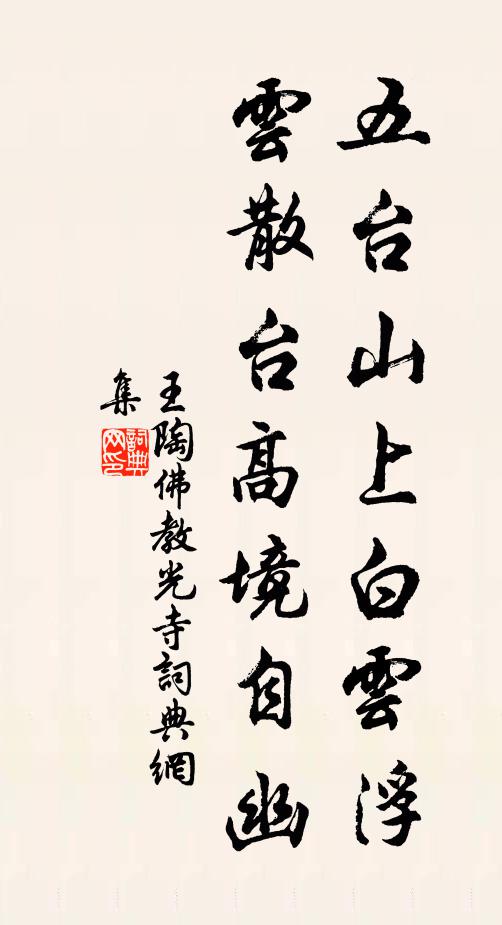 五台山上白雲浮
雲散台高境自幽
王陶佛教光寺詞典網
集
詞典
网印